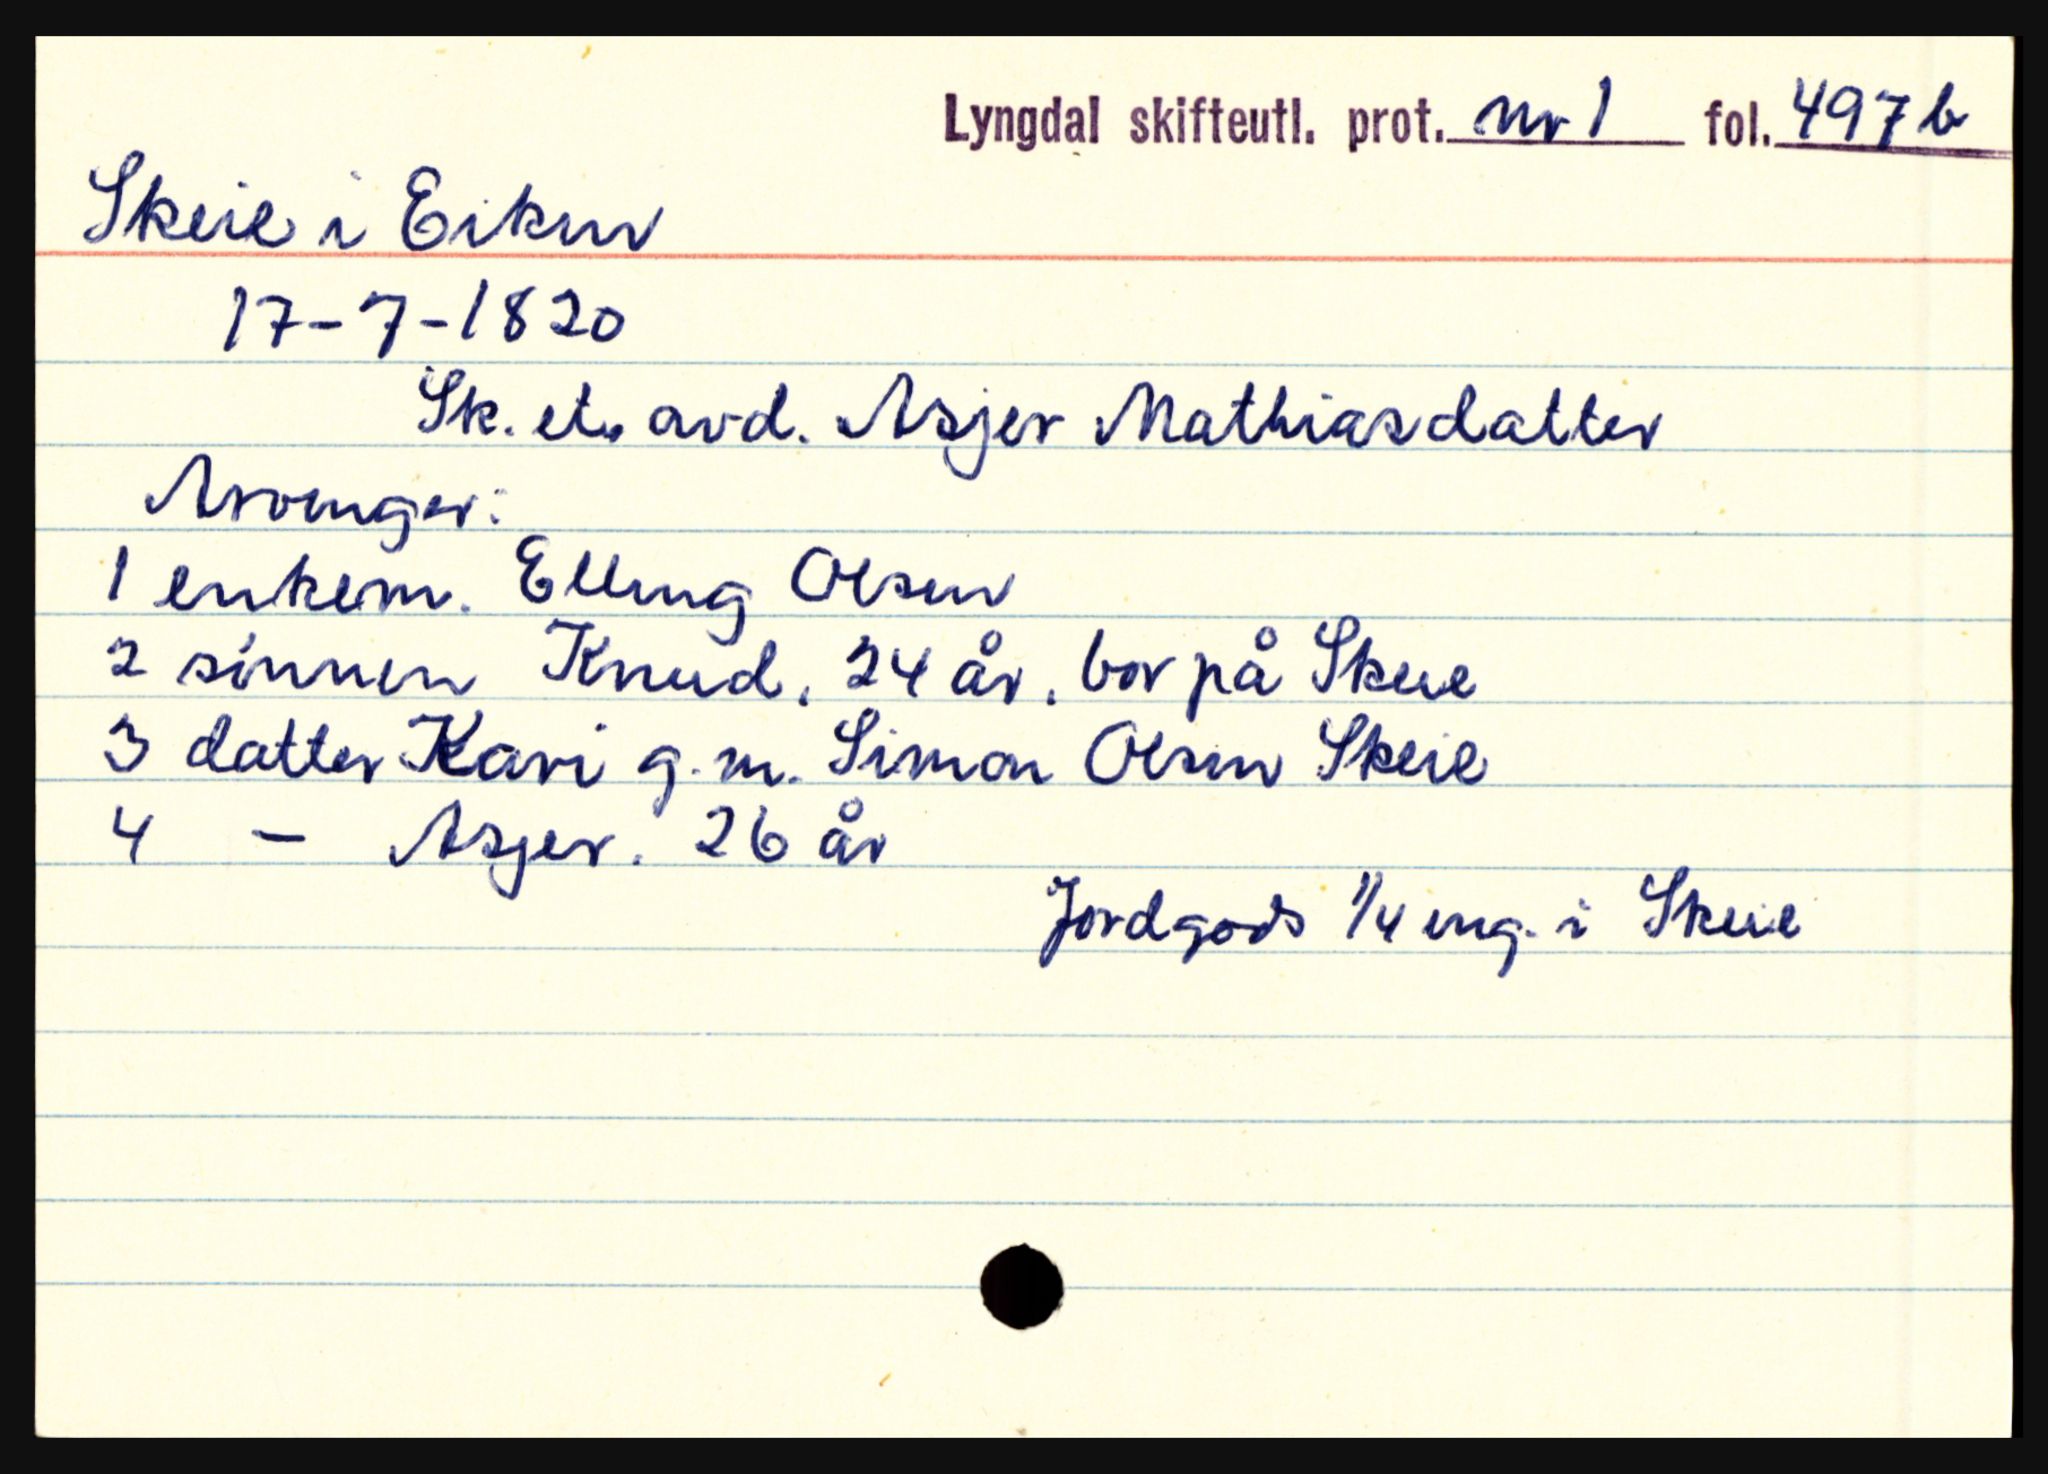 Lyngdal skifteutl. prot. nr 1 fol. 497b
Skeie i Eiken
17-7-1820
Sk. et. avd. Asjer Mathiasdatter
Arvinger:
1 enkem. Elling Olsen
2 sønnen Knud. 24 år. bor på Skeie
3 datter Kari g.m. Simon Olsen Skeie
4 — Asjer. 26 år
Jordgods 1/4 eng. i Skeie